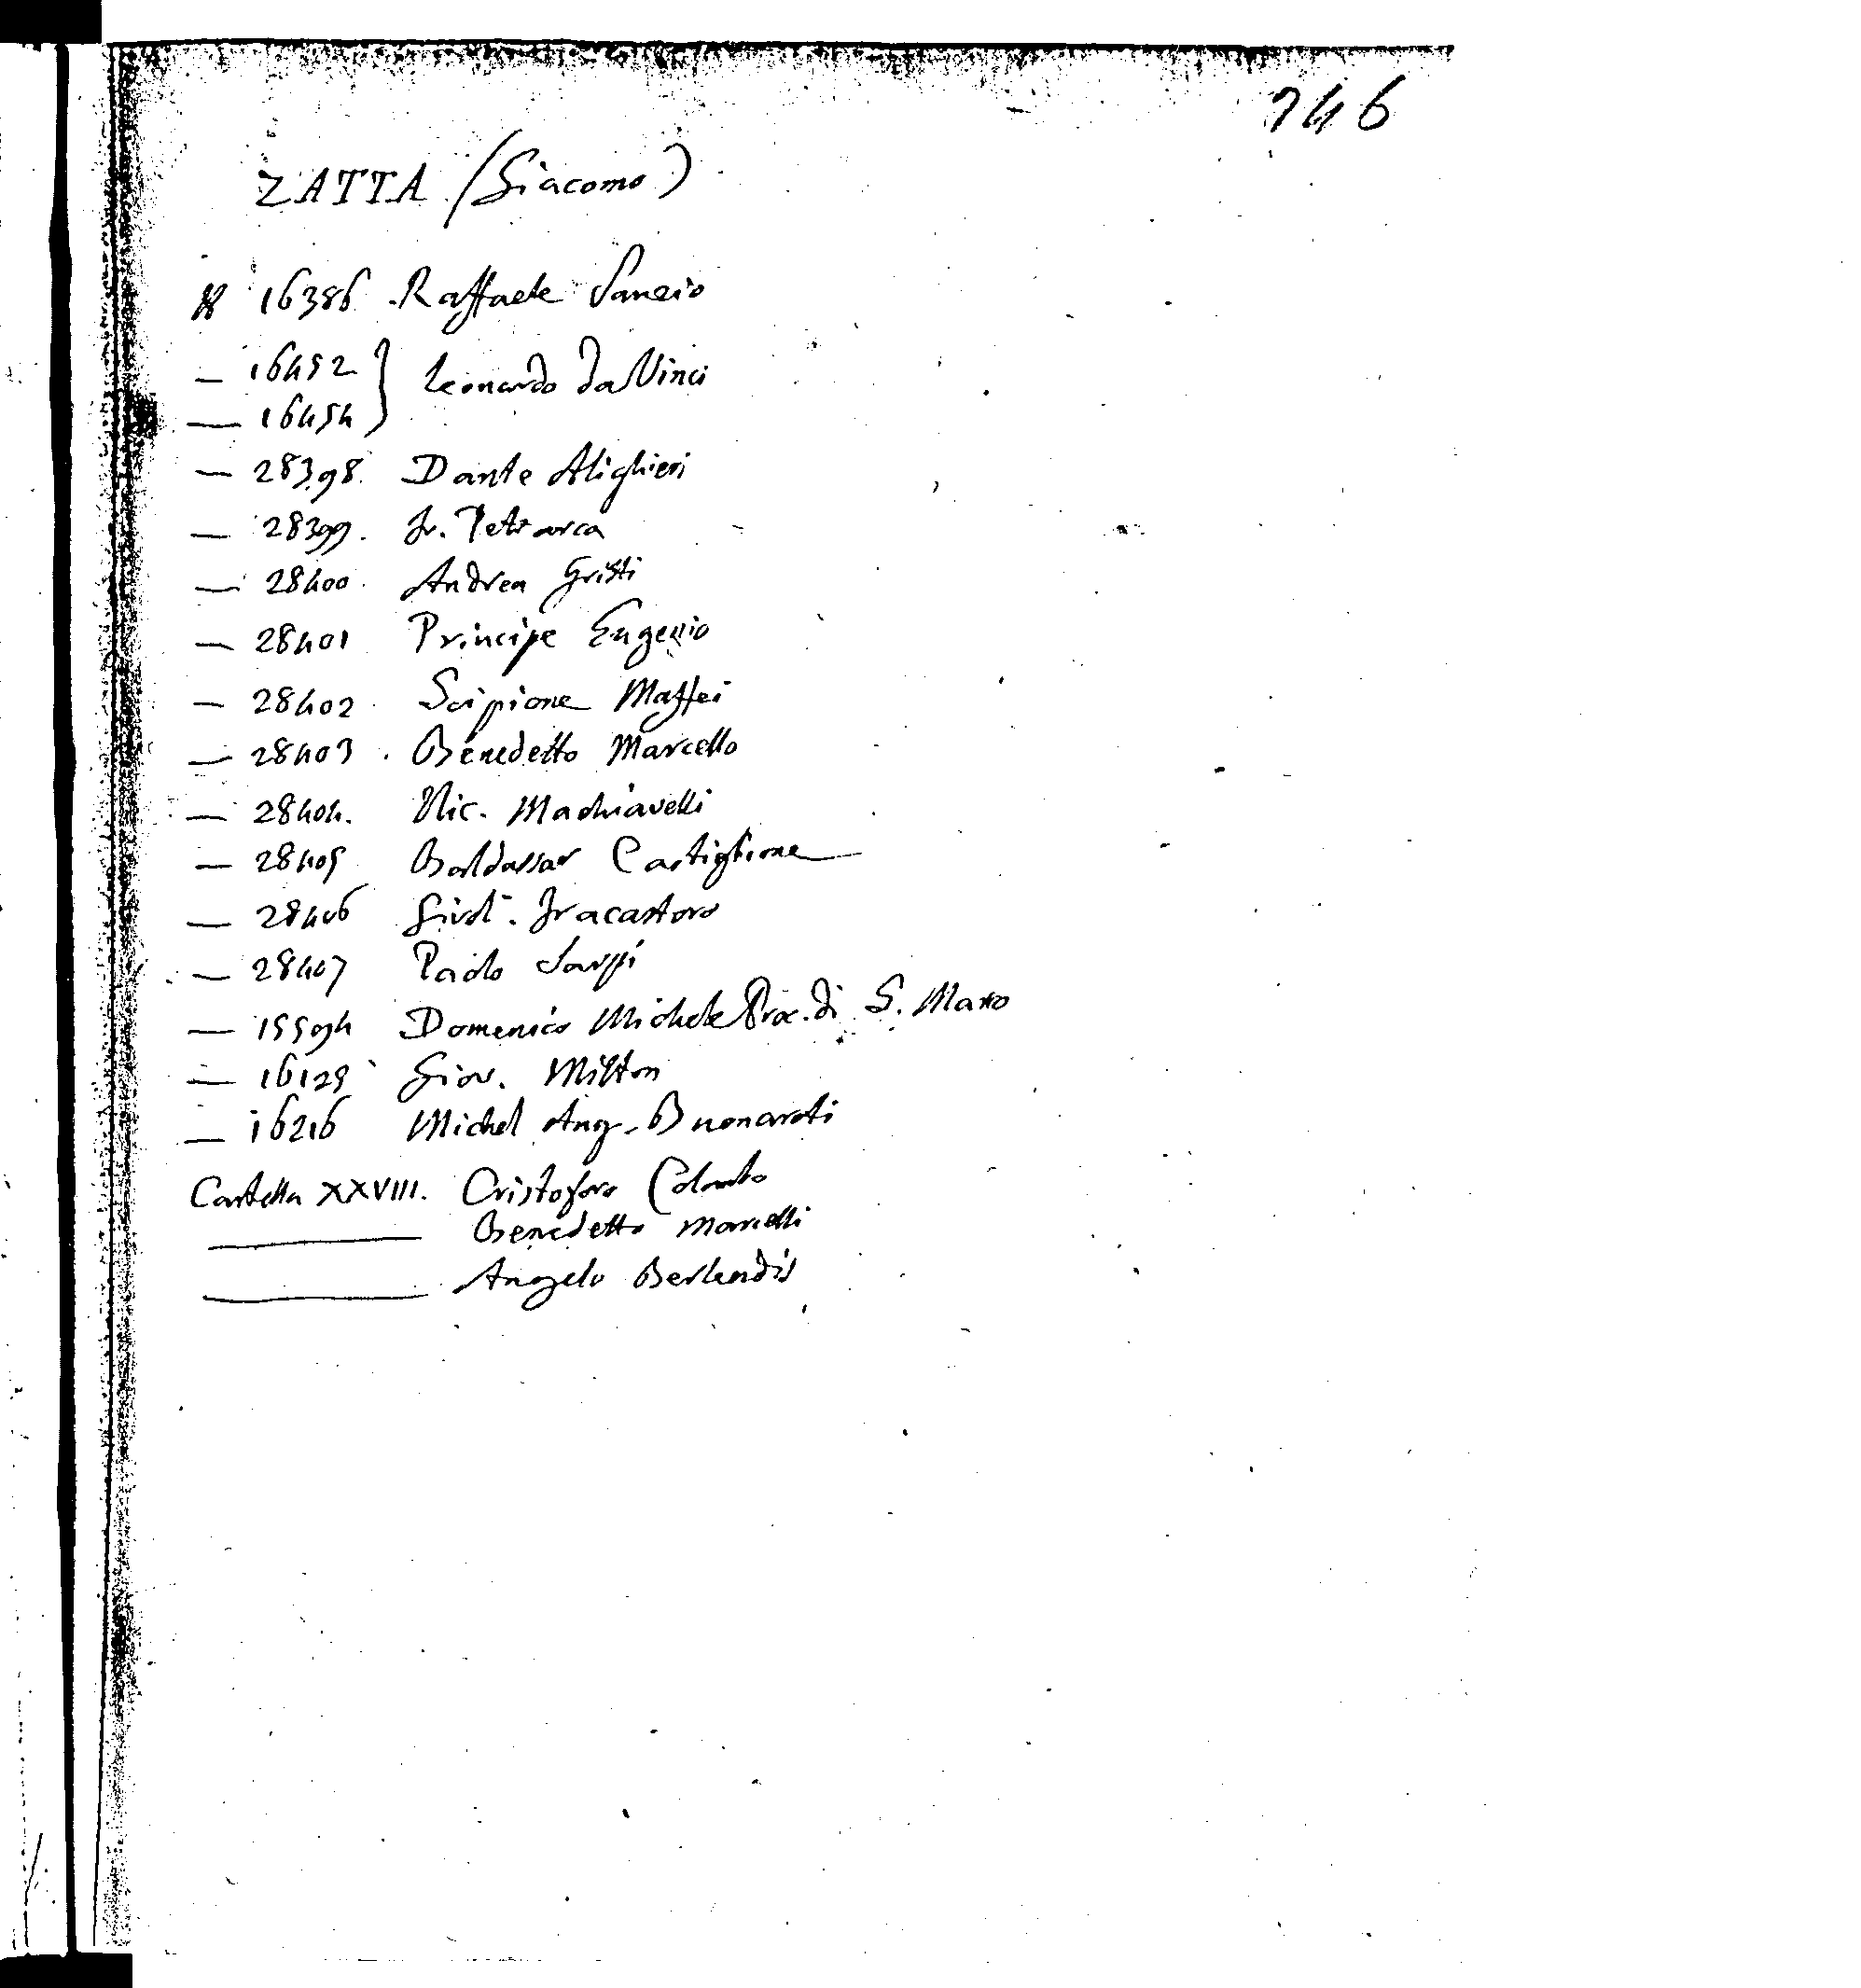 746
ZATTA (Giacomo)
16386. Raffaele Sanzio
— 16452 } Leonardo da Vinci
— 16454
— 28398. Dante Alighieri
— 28399. Fr. Petrarca
— 28400. Andrea Gritti
— 28401 Principe Eugenio
— 28402. Scipione Maffei
— 28403. Benedetto Marcello
— 28404. Nic. Machiavelli
— 28405 Baldassar Castiglione
— 28406 Girol. Fracastoro
— 28407 Paolo Sarpi
— 15594 Domenico Michele Proc. di S. Marco
— 16129 Giov. Milton
— 16216 Michel Ang. Buonaroti
Cartella XXVIII. Cristoforo Colombo
— Benedetto Marcelli
— Angelo Berlendis